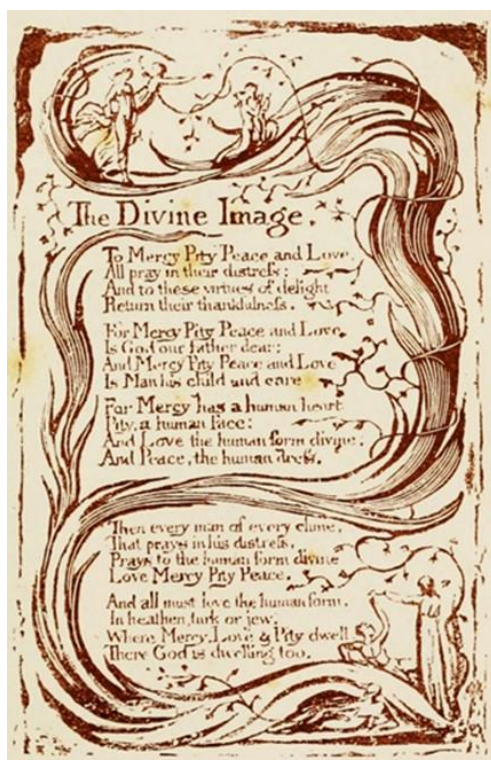 The Divine Image.
To Mercy Pity Peace and Love,
All pray in their distreſs:
And to these virtues of delight
Return their thankfulneſs.
For Mercy Pity Peace and Love,
Is God our father dear:
And Mercy Pity Peace and Love
Is Man his child and care
For Mercy has a human heart
Pity, a human face:
And Love the human form divine,
And Peace, the human dreſs.
Then every man of every clime,
That prays in his distreſs,
Prays to the human form divine
Love Mercy Pity Peace.
And all must love the human form,
In heathen, turk or jew.
Where Mercy, Love & Pity dwell
There God is dwelling too.